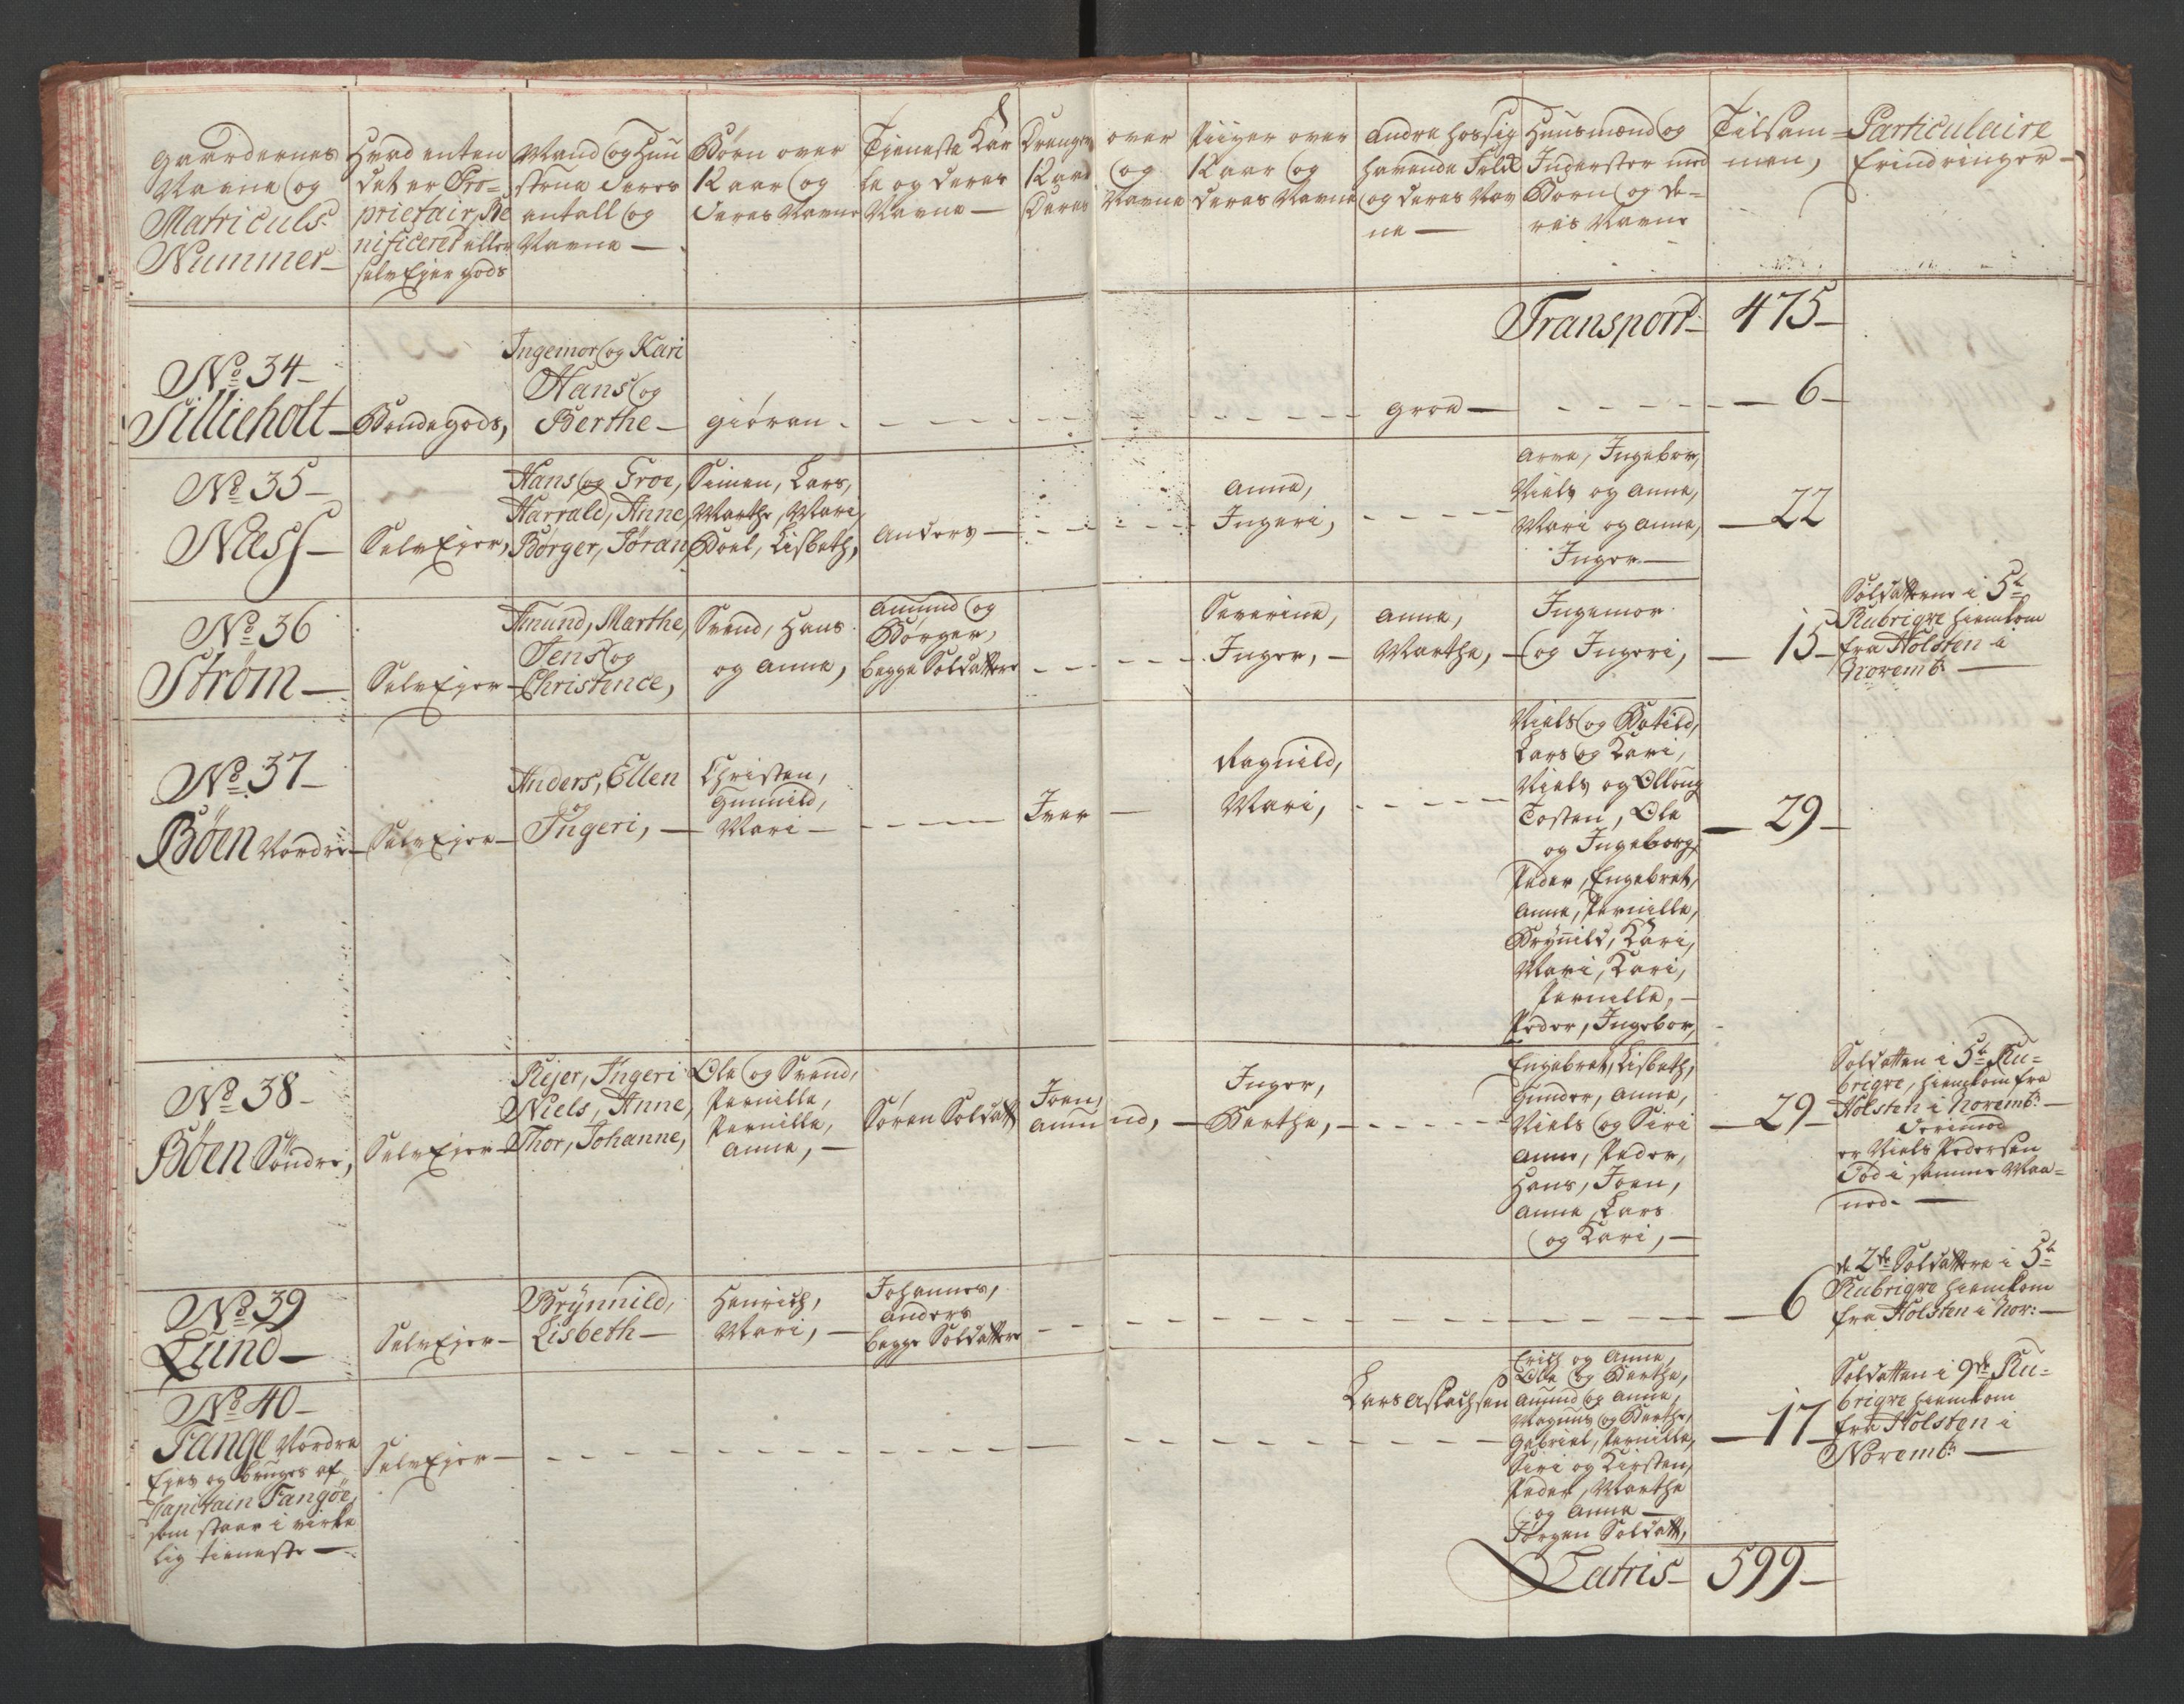 Gaardernes
Navne og
Matriculs
Nummer
Hvad enten
det er Pro=
prietair, Be
nificeret eller
selv Ejer gods
Mand og Huu
strue deres
antall og
Navne
Børn over
12 aar og
deres Navne
Tieneste Kar
le og deres
Navne
Drenger over
12 aar og
Deres Navne
Piiger over
12 aar og
deres Navne
Andre hos sig
havende Folk
og deres Nav
ne
Huusmænd og
Inderster med
Børn og de=
res Navne
Tilsam=
men,
Particulaire
Erindringer
Transport 475
No 34
Tillieholt
Bondegods,
Ingemor og Kari
Hans og
Berthe
Giøran
Groe
6
No 35
Næss
Selv Ejer,
Hans og Groe,
Harrald, Anne,
Børger, Jøran
Simen, Lars,
Marthe, Mari,
Boel, Lisbeth,
Anders
Anne,
Ingeri,
Arne, Ingebor,
Niels og Anne,
Mari og Anne,
Inger
22
No 36
Strøm
Selv Ejer
Amund, Marthe,
Jens og
Christence,
Svend, Hans
og Anne,
Amund og
Børger,
begge Soldattere
Severine,
Inger,
Anne,
Marthe,
Ingemor
og Ingeri,
15
Soldatterne i 5te
Rubrique hiemkom
fra Holsten i
Novemb:
No 37
Bøen Nordre
Selv Ejer
Anders, Ellen
og
Ingeri,
Christen,
Gunnild,
Mari
Iver
Ragnild,
Mari,
Niels og Botild,
Lars og Kari,
Niels og Olloug
Tosten, Ole
og Ingeborg,
Peder, Engebret,
Anne, Pernille,
Brynnild, Kari,
Mari, Kari,
Pernille,
Peder, Ingebor,
29
No 38
Bøen Søndre,
Selv Ejer
Rejer, Ingeri
Niels, Anne,
Thor, Johanne,
Ole og Svend,
Pernille,
Pernille,
Anne,
Søren Soldatt
Joen,
Amund,
Inger,
Berthe,
Engebret, Lisbeth,
Gunder, Anne,
Niels og Siri
Anne, Peder,
Hans, Joen,
Anne, Lars
og Kari,
29
Soldatten i 5te Ru=
brique, hiemkom fra
Holsten i Novemb:
derimod
er Niels Pedersen
Død i samme Maa=
ned.
No 39
Lund
Selv Ejer
Brynnild,
Lisbeth
Henrich,
Mari,
Johannes,
Anders
begge Soldattere
6
de 2de Soldattere i 5te
Rubrique hiemkom
fra Holsten i Nov:
No 40
Tange Nordre
Ejes og bruges af
Capitain Tangøe,
som staar i virke
lig tieneste
Selv Ejer
Lars Aslachsen
Erich og Anne,
Ole og Berthe,
Amund og Anne,
Magnus og Berthe,
Gabriel, Pernille,
Siri og Kirsten,
Peder, Marthe
og Anne
Jørgen Soldatt,
17
Soldatten i 9de Ru=
brique hiemkom
fra Holsten i
Novemb:
Latris 599